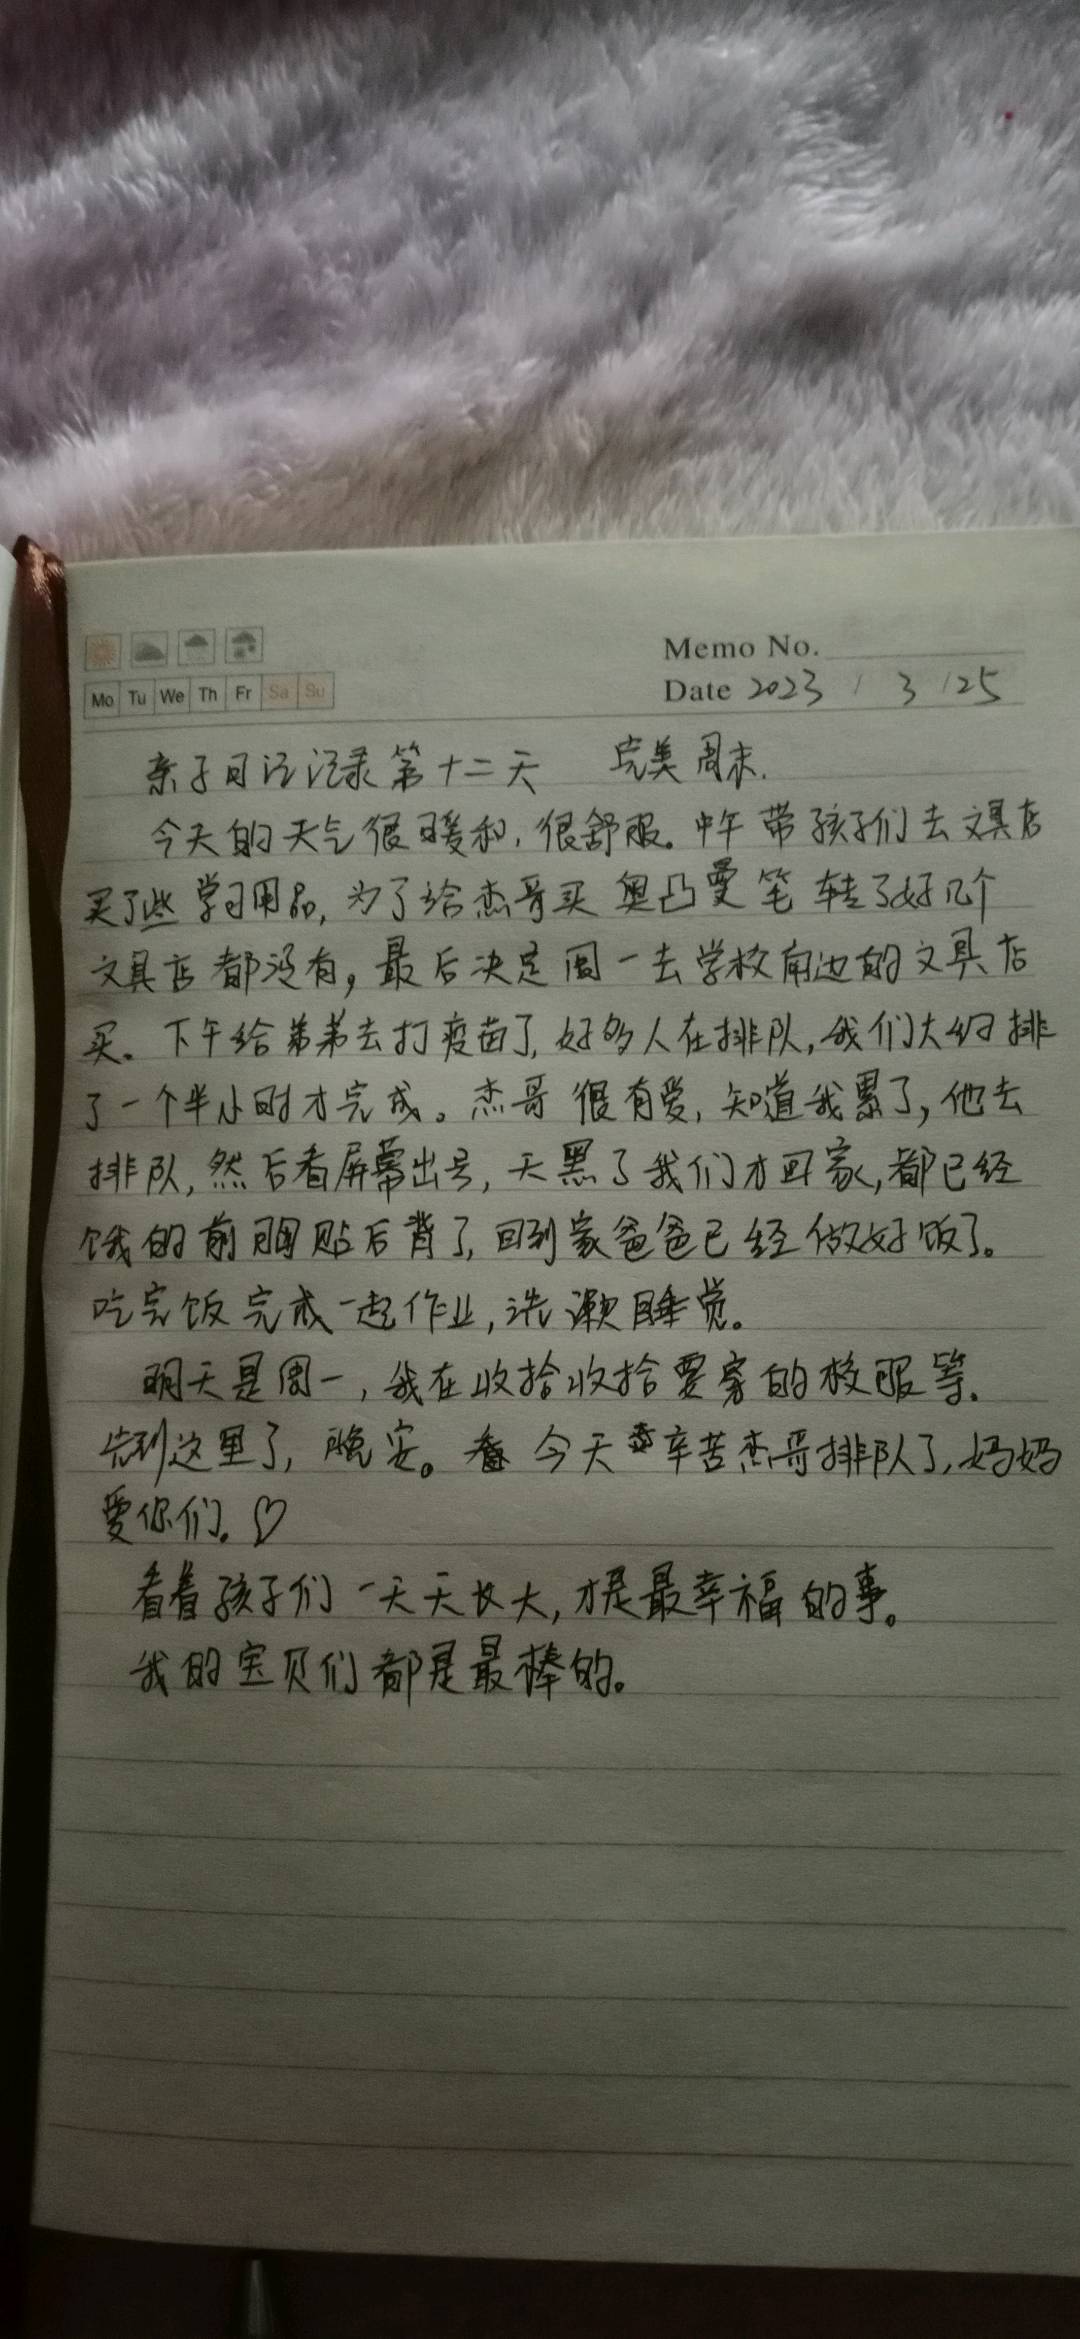 Memo No.
Mo Tu We Th Fr Sa Su
Date 2023 / 3 / 25
亲子日记记录第十二天 完美周末.
今天的天气很暖和,很舒服。中午带孩子们去文具店
买了些学习用品,为了给杰哥买奥凸曼笔转了好几个
文具店都没有,最后决定周一去学校旁边的文具店
买。下午给弟弟去打疫苗了,好多人在排队,我们大约排
了一个半小时才完成。杰哥很有爱,知道我累了,他去
排队,然后看屏幕出号,天黑了我们才回家,都已经
饿的前胸贴后背了,回到家爸爸已经做好饭了。
吃完饭完成一起作业,洗漱睡觉。
明天是周一,我在收拾收拾要穿的校服等.
先到这里了,晚安。今天辛苦杰哥排队了,妈妈
爱你们。♡
看着孩子们一天天长大,才是最幸福的事。
我的宝贝们都是最棒的。